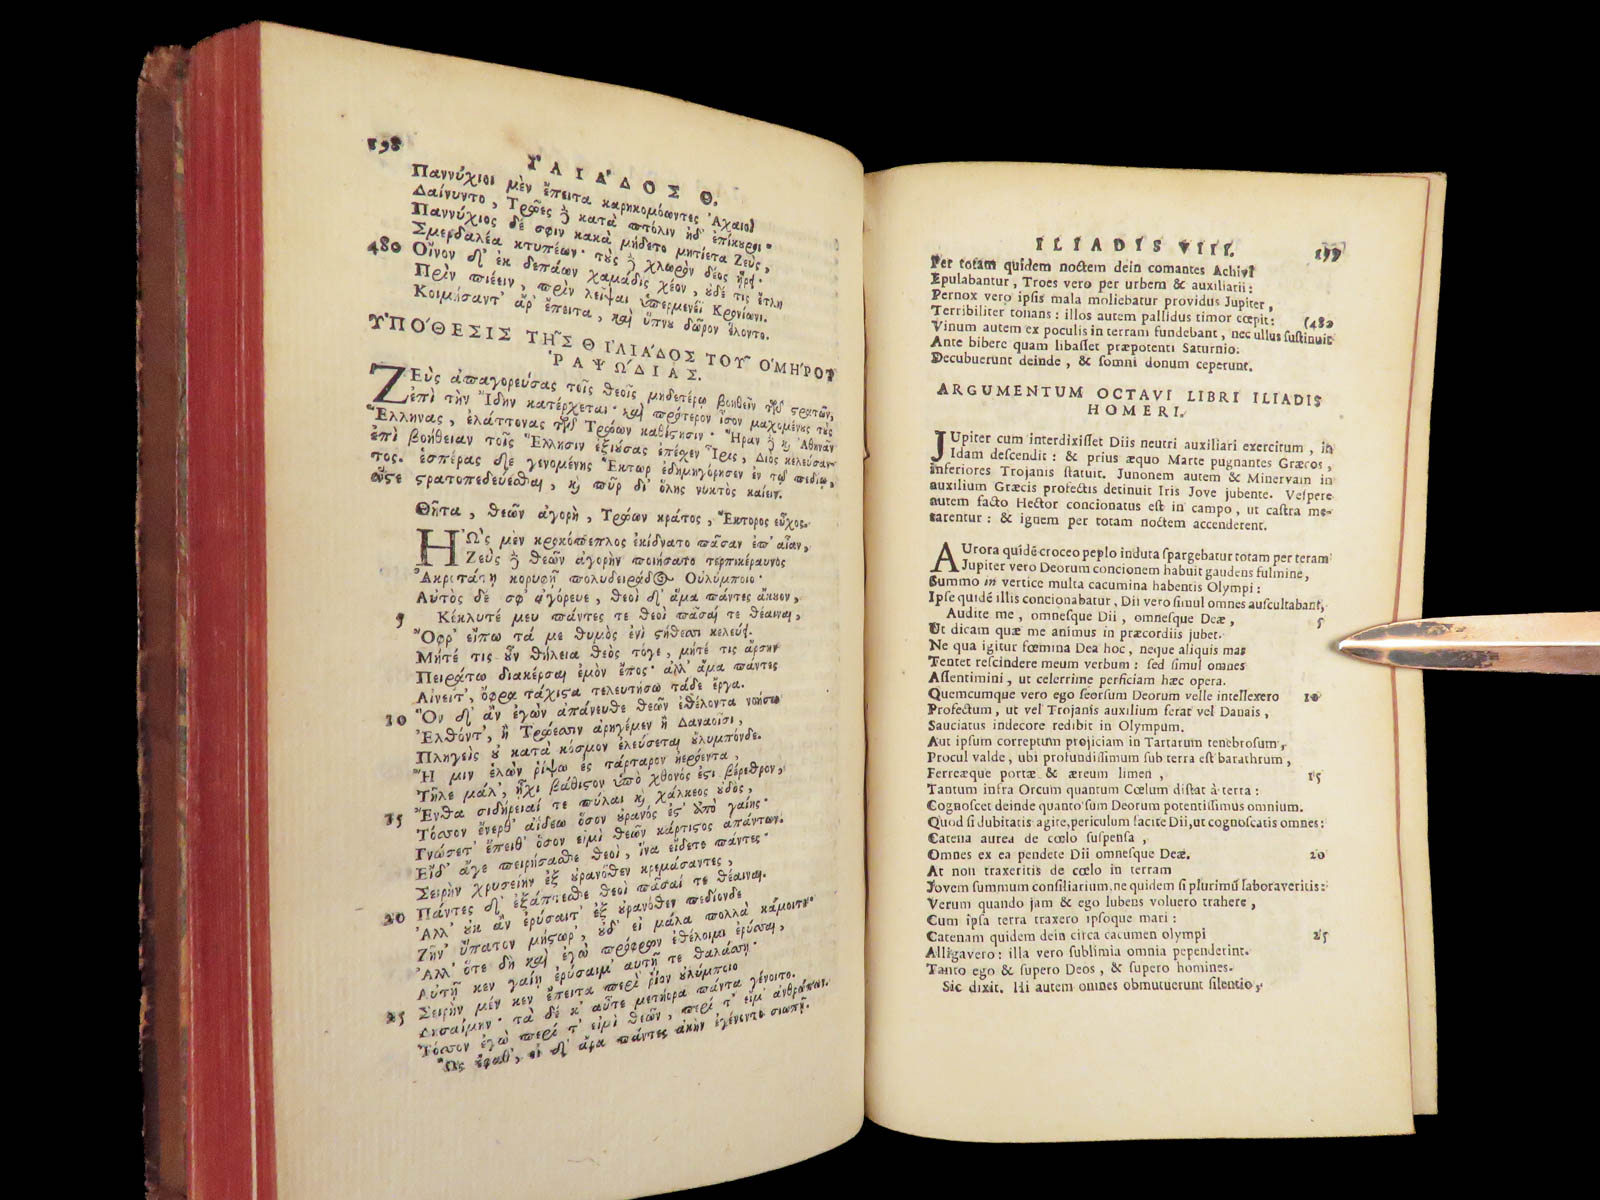 198
ἸΛΙΆΔΟΣ Θ.
Παννύχιοι μὲν ἔπειτα καρηκομόωντες Ἀχαιοὶ
Δαίνυντο, Τρῶες ȣ̓ κατὰ πτόλιν ἠδ' ἐπίκουροι·
Παννύχιος δέ σφιν κακὰ μήδετο μητίετα Ζεὺς,
Σμερδαλέα κτυπέων· τοὺς χλωρὸν δέος ᾕρει·
480 Οἶνον δ' ἐκ δεπάων χαμάδις χέον, οὐδέ τις ἔτλη
Πρὶν πιέειν, πρὶν λεῖψαι ὑπερμενέϊ Κρονίωνι.
Κοιμήσαντ' ἄρ' ἔπειτα, καὶ ὕπνου δῶρον ἕλοντο.
ὙΠΌΘΕΣΙΣ ΤΗ͂Σ Θ ἸΛΙΆΔΟΣ ΤΟΥ͂ ὉΜΉΡΟΥ
ῬΑΨΩΔΊΑΣ.
ΖΕὺς ἀπαγορεύσας τοῖς θεοῖς μηδετέρῳ βοηθεῖν τῶν στρατῶν,
ἐπὶ τὴν Ἴδην κατέρχεται· καὶ πρότερον ἴσον μαχομένους τοὺς
Ἕλληνας, ἐλάττονας τῶν Τρώων καθίστησιν· Ἥραν δὲ καὶ Ἀθηνᾶν
ἐπὶ βοήθειαν τοῖς Ἕλλησιν ἐξιούσας ἐπέχει Ἶρις, Διὸς κελεύσαν-
τος. ἑσπέρας δὲ γενομένης Ἕκτωρ ἐδημηγόρησεν ἐν τῷ πεδίῳ,
ὥστε στρατοπεδεύεσθαι, καὶ πῦρ δι' ὅλης νυκτὸς καίειν.
Θῆτα, θεῶν ἀγορὴ, Τρώων κράτος, Ἕκτορος εὖχος.
ἨῺς μὲν κροκόπεπλος ἐκίδνατο πᾶσαν ἐπ' αἶαν,
Ζεὺς δὲ θεῶν ἀγορὴν ποιήσατο τερπικέραυνος
Ἀκροτάτῃ κορυφῇ πολυδειράδος Οὐλύμποιο·
Αὐτὸς δέ σφ' ἀγόρευε, θεοὶ δ' ἅμα πάντες ἄκουον,
5 Κέκλυτέ μευ πάντες τε θεοὶ πᾶσαί τε θέαιναι,
Ὄφρ' εἴπω τά με θυμὸς ἐνὶ στήθεσσι κελεύει.
Μήτέ τις οὖν θήλεια θεὸς τόγε, μήτέ τις ἄρσην
Πειράτω διακέρσαι ἐμὸν ἔπος· ἀλλ' ἅμα πάντες
Αἰνεῖτ', ὄφρα τάχιστα τελευτήσω τάδε ἔργα.
10 Ὃν δ' ἂν ἐγὼν ἀπάνευθε θεῶν ἐθέλοντα νοήσω
Ἐλθόντ', ἢ Τρώεσσιν ἀρηγέμεν ἢ Δαναοῖσι,
Πληγεὶς οὐ κατὰ κόσμον ἐλεύσεται οὔλυμπόνδε.
Ἤ μιν ἑλὼν ῥίψω ἐς τάρταρον ἠερόεντα,
Τῆλε μάλ', ἧχι βάθιστον ὑπὸ χθονός ἐστι βέρεθρον,
15 Ἔνθα σιδήρειαί τε πύλαι καὶ χάλκεος οὐδὸς,
Τόσσον ἔνερθ' ἀΐδεω ὅσον οὐρανός ἐστ' ἀπὸ γαίης·
Γνώσετ' ἔπειθ' ὅσον εἰμὶ θεῶν κάρτιστος ἁπάντων.
Εἰδ' ἄγε πειρήσασθε θεοὶ, ἵνα εἴδετε πάντες·
Σειρὴν χρυσείην ἐξ οὐρανόθεν κρεμάσαντες,
20 Πάντες δ' ἐξάπτεσθε θεοὶ πᾶσαί τε θέαιναι.
Ἀλλ' οὐκ ἂν ἐρύσαιτ' ἐξ οὐρανόθεν πεδίονδε
Ζῆν' ὕπατον μήστωρ', οὐδ' εἰ μάλα πολλὰ κάμοιτε·
Ἀλλ' ὅτε δὴ καὶ ἐγὼ πρόφρων ἐθέλοιμι ἐρύσσαι,
Αὐτῇ κεν γαίῃ ἐρύσαιμ' αὐτῇ τε θαλάσσῃ·
25 Σειρὴν μέν κεν ἔπειτα περὶ ῥίον οὐλύμποιο
Δησαίμην· τὰ δέ κ' αὖτε μετήορα πάντα γένοιτο.
Τόσσον ἐγὼ περί τ' εἰμὶ θεῶν, περί τ' εἴμ' ἀνθρώπων.
Ὣς ἔφαθ', οἱ δ' ἄρα πάντες ἀκὴν ἐγένοντο σιωπῇ.
ILIADIS VIII. 199
Per totam quidem noctem dein comantes Achivi
Epulabantur, Troes vero per urbem & auxiliarii:
Pernox vero ipsis mala moliebatur providus Jupiter,
Terribiliter tonans: illos autem pallidus timor cœpit: (480
Vinum autem ex poculis in terram fundebant, nec ullus sustinuit
Ante bibere quam libasset præpotenti Saturnio.
Decubuerunt deinde, & somni donum ceperunt.
ARGUMENTUM OCTAVI LIBRI ILIADIS
HOMERI.
JUpiter cum interdixisset Diis neutri auxiliari exercitum, in
Idam descendit: & prius æquo Marte pugnantes Græcos,
inferiores Trojanis statuit. Junonem autem & Minervam in
auxilium Græcis profectis detinuit Iris Jove jubente. Vespere
autem facto Hector concionatus est in campo, ut castra me-
tarentur: & ignem per totam noctem accenderent.
AUrora quidē croceo peplo induta spargebatur totam per teram
Jupiter vero Deorum concionem habuit gaudens fulmine,
Summo in vertice multa cacumina habentis Olympi:
Ipse quidē illis concionabatur, Dii vero simul omnes auscultabant,
Audite me, omnesque Dii, omnesque Deæ, 5
Ut dicam quæ me animus in præcordiis jubet.
Ne qua igitur fœmina Dea hoc, neque aliquis mas
Tentet rescindere meum verbum: sed simul omnes
Assentimini, ut celerrime perficiam hæc opera.
Quemcumque vero ego seorsum Deorum velle intellexero 10
Profectum, ut vel Trojanis auxilium ferat vel Danais,
Sauciatus indecore redibit in Olympum.
Aut ipsum correptum projiciam in Tartarum tenebrosum,
Procul valde, ubi profundissimum sub terra est barathrum,
Ferreæque portæ & æreum limen, 15
Tantum infra Orcum quantum Cœlum distat à terra:
Cognoscet deinde quanto sum Deorum potentissimus omnium.
Quod si dubitatis agite, periculum facite Dii, ut cognoscatis omnes:
Catena aurea de cœlo suspensa,
Omnes ex ea pendete Dii omnesque Deæ. 20
At non traxeritis de cœlo in terram
Jovem summum consiliarium, ne quidem si plurimū laboraveritis:
Verum quando jam & ego lubens voluero trahere,
Cum ipsa terra traxero ipsoque mari:
Catenam quidem dein circa cacumen olympi 25
Alligavero: illa vero sublimia omnia pependerint.
Tanto ego & supero Deos, & supero homines.
Sic dixit. Hi autem omnes obmutuerunt silentio,